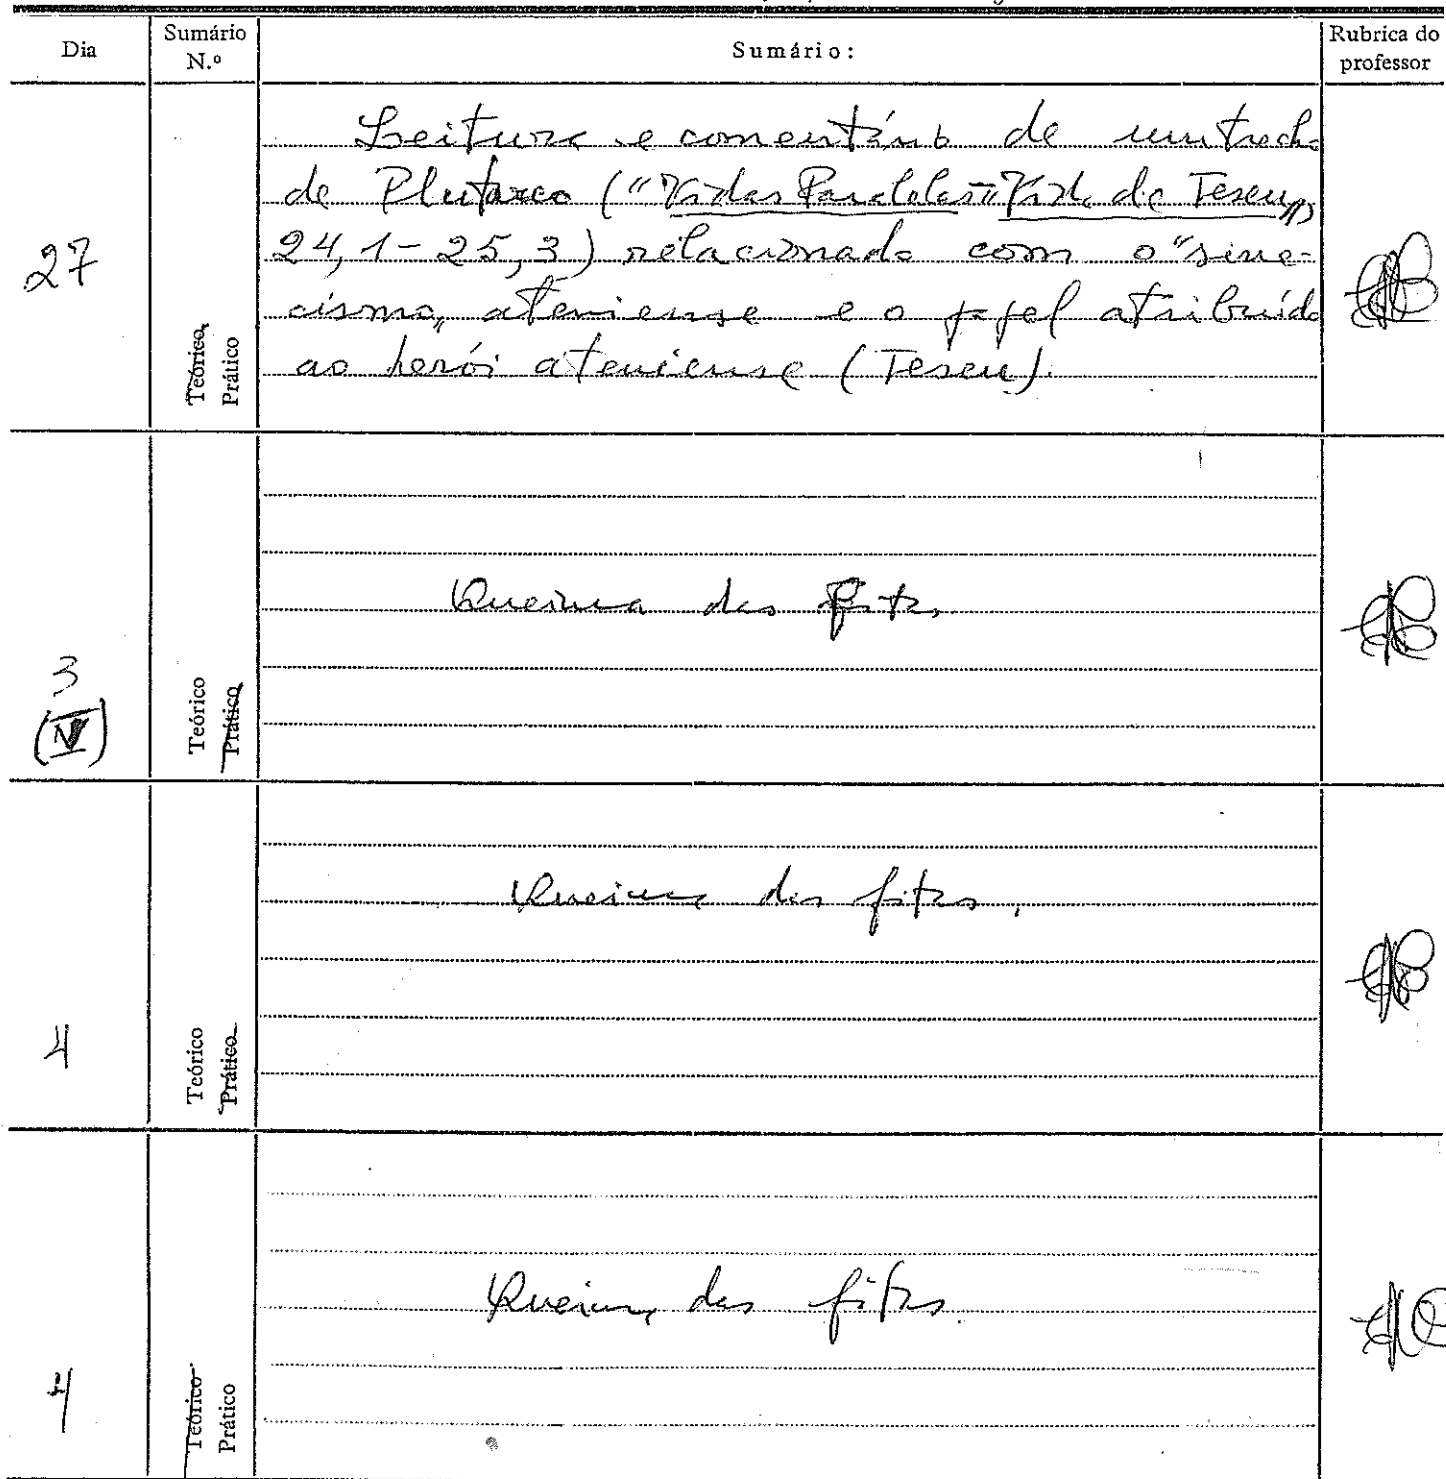 Dia
Sumário N.º
Sumário:
Rubrica do professor
27
Teórico
Prático
Leitura e comentário de um trecho
de Plutarco ("Vidas Paralelas" "Vida de Teseu",
24, 1-25, 3) relacionado com o "sine-
cismo" ateniense e o papel atribuído
ao herói ateniense (Teseu).
3
(V)
Teórico
Prático
Queima das fitas
4
Teórico
Prático
Queima das fitas.
4
Teórico
Prático
Queima das fitas.